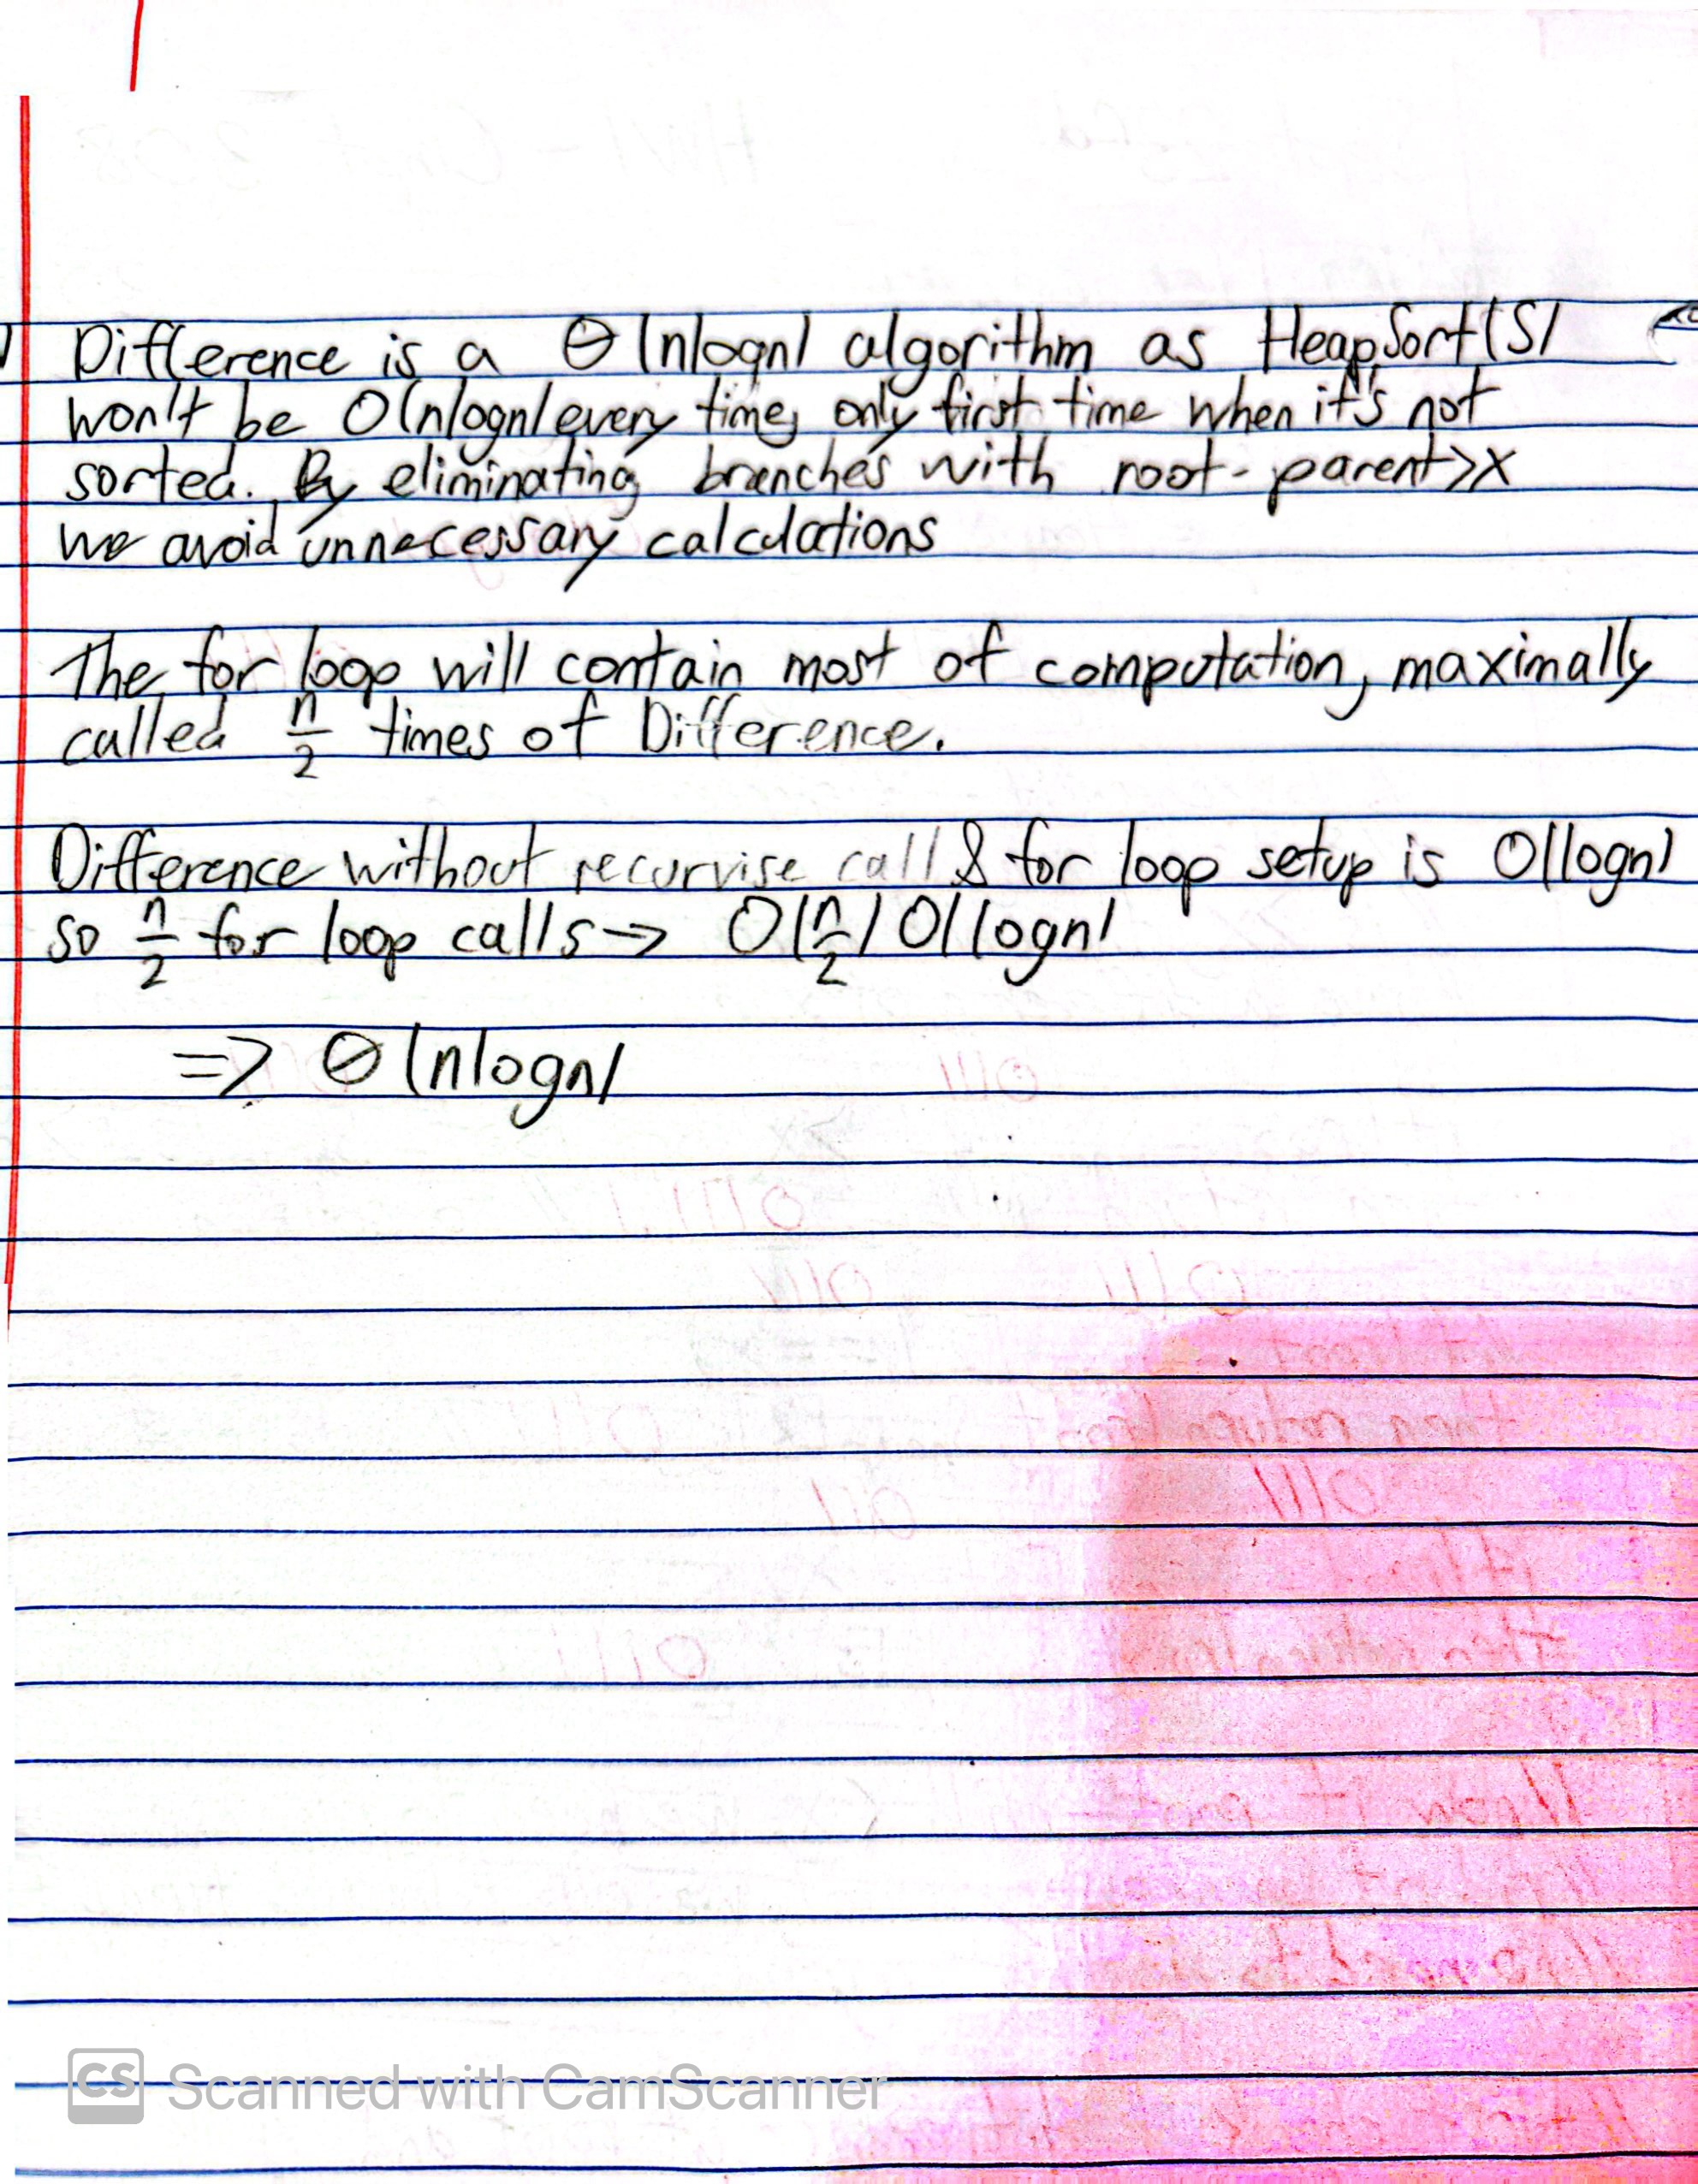 Difference is a Θ(nlogn) algorithm as HeapSort(S)
won't be O(nlogn) every time, only first time when it's not
sorted. By eliminating branches with root-parent>x
we avoid unnecessary calculations
The for loop will contain most of computation, maximally
called n/2 times of Difference.
Difference without recurvise call & for loop setup is O(logn)
so n/2 for loop calls → O(n/2) O(logn)
=> Θ(nlogn)
CS Scanned with CamScanner